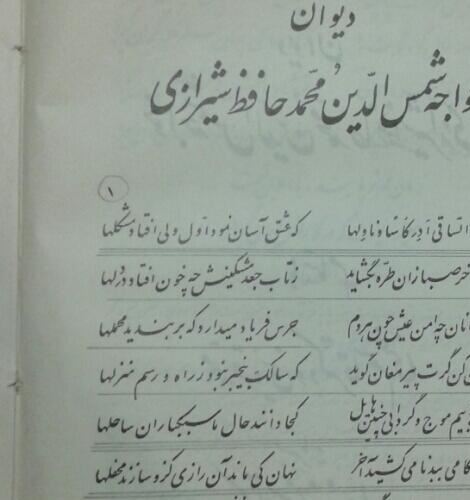 دیوان
واجه شمس الدّین محمّد حافظ شیرازی
۱
الساقی ادر کاسا و ناولها که عشق آسان نمود اول ولی افتاد مشکلها
خر صبا زان طره بگشاید ز تاب جعد مشکینش چه خون افتاد در دلها
نان چه امن عیش چون هر دم جرس فریاد میدارد که بربندید محملها
کن گرت پیر مغان گوید که سالک بیخبر نبود ز راه و رسم منزلها
یم موج و گردابی چنین هایل کجا دانند حال ما سبکباران ساحلها
کامی ببدنامی کشید آخر نهان کی ماند آن رازی کزو سازند محفلها